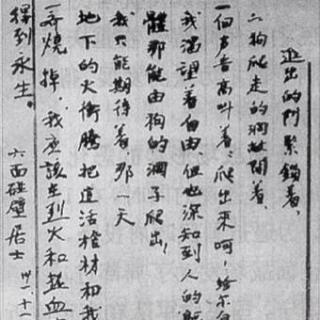 進出的門紧鎖着,
为狗爬走的洞敞開着,
一個声音高叫着:爬出来呵,给尔自
我渴望着自由,但也深知到人的躯
體那能由狗的洞子爬出!
我只能期待着,那一天
地下的火衝騰把這活棺材和我
一齊燒掉,我应該在烈火和热血
得到永生。
六面碰壁居士 卅一.十一